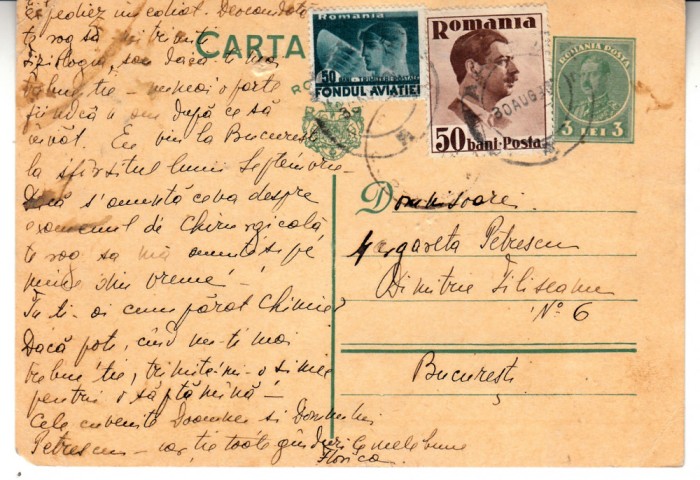 expediez imediat. Deocamdată
te rog să-mi trimiți
fiziologia, sau dacă ți mai
trebuește – numai o parte
fiindcă n-am după ce să
învăț. Eu vin la București
la sfârșitul lunii Septembrie.
Dacă s'anunță ceva despre
examenul de Chirurgicală
te rog să mă anunți și pe
mine din vreme!
Tu ți-ai cumpărat Chimie?
Dacă poți, când nu-ți mai
trebue ție, trimite-mi-o și mie
pentru o săptămînă –
Cele cuvenite Doamnei și Domnului
Petrescu – iar ție toate gânduri le mele bune
Florica.
CARTA
ROMANIA
50 BANI TIMBRU POSTALE
FONDUL AVIAȚIEI
ROMANIA
50 bani·Posta
30 AUG 93
ROMANIA POSTA
3 LEI 3
Domnisoarei
Margareta Petrescu
Dimitrie Filiseanu
No 6
București